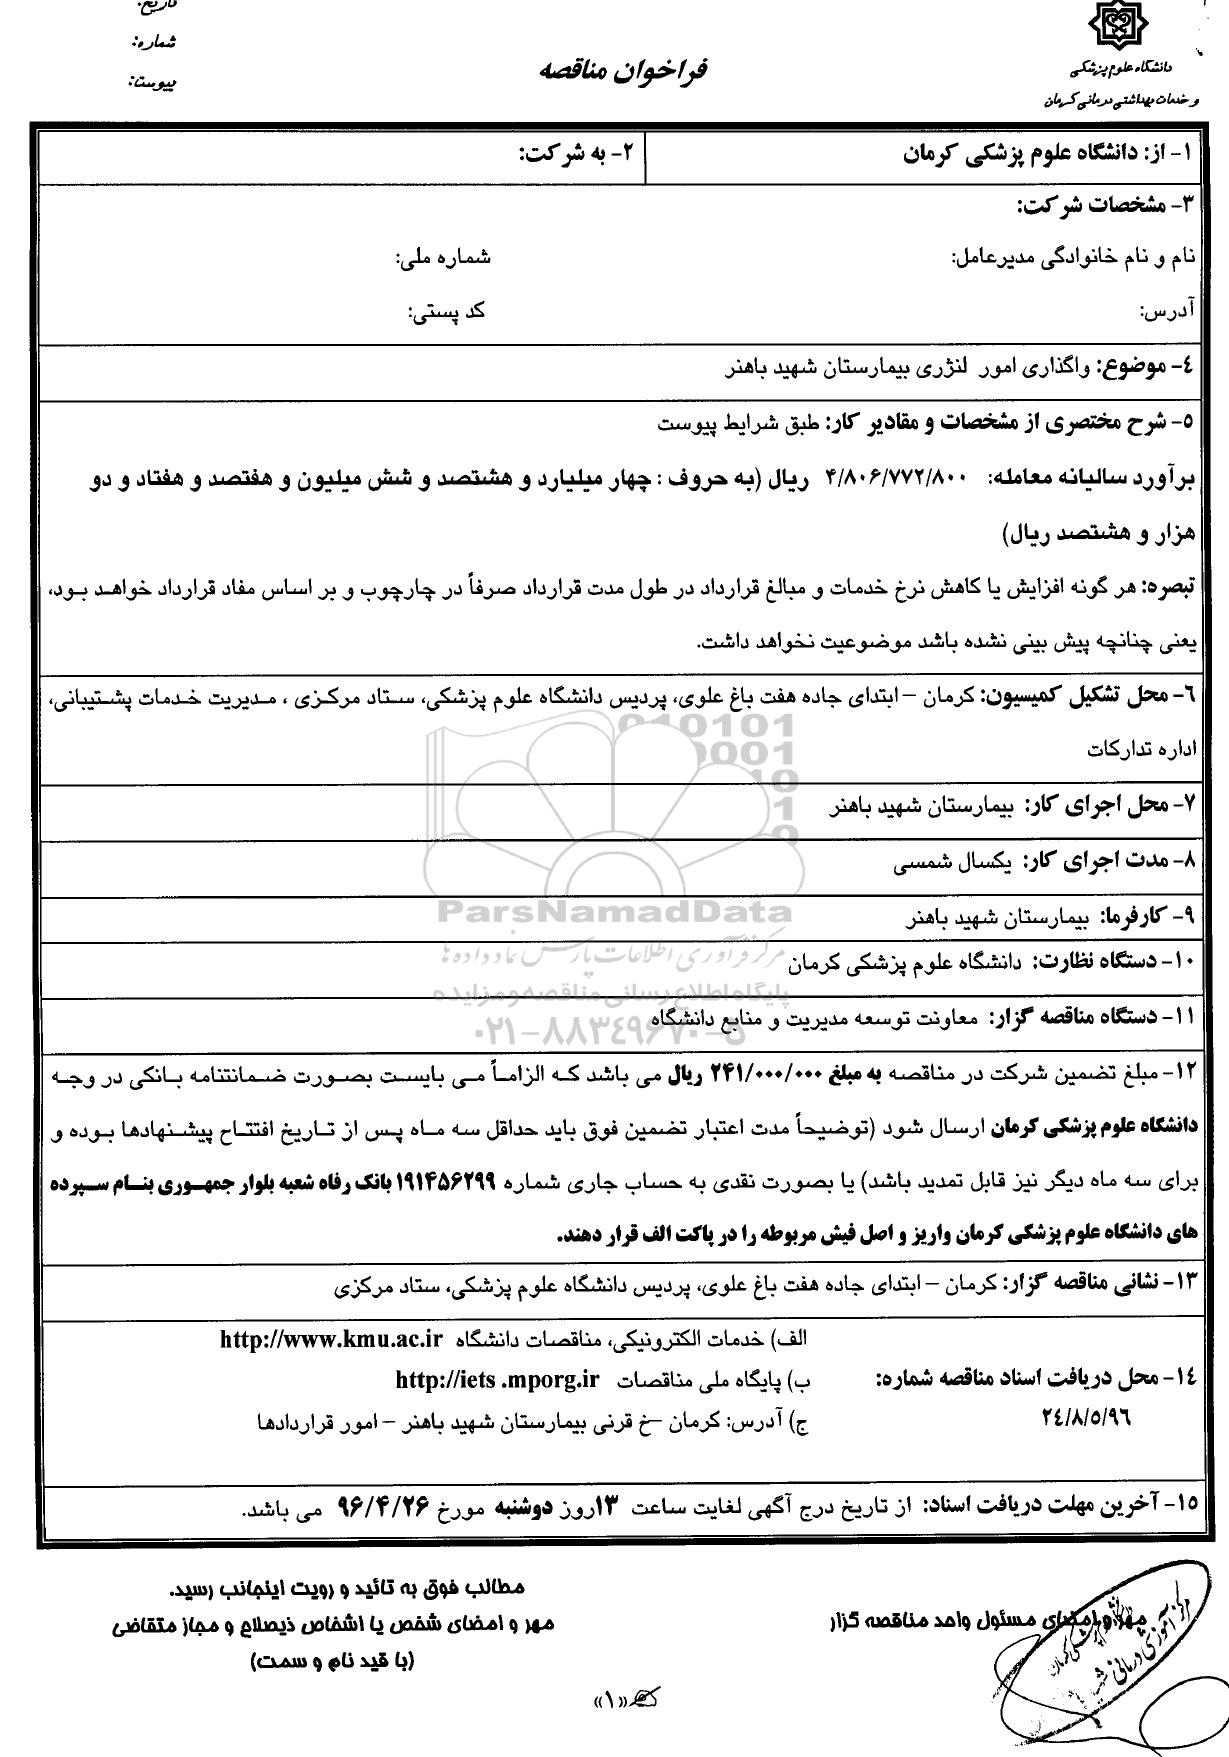 تاریخ:
شماره:
پیوست:
دانشگاه علوم پزشکی
و خدمات بهداشتی درمانی کرمان
فراخوان مناقصه
۱- از: دانشگاه علوم پزشکی کرمان
۲- به شرکت:
۳- مشخصات شرکت:
نام و نام خانوادگی مدیرعامل: شماره ملی:
آدرس: کد پستی:
٤- موضوع: واگذاری امور لنژری بیمارستان شهید باهنر
٥- شرح مختصری از مشخصات و مقادیر کار: طبق شرایط پیوست
برآورد سالیانه معامله: ۴/۸۰۶/۷۷۲/۸۰۰ ریال (به حروف : چهار میلیارد و هشتصد و شش میلیون و هفتصد و هفتاد و دو
هزار و هشتصد ریال)
تبصره: هر گونه افزایش یا کاهش نرخ خدمات و مبالغ قرارداد در طول مدت قرارداد صرفاً در چارچوب و بر اساس مفاد قرارداد خواهد بود،
یعنی چنانچه پیش بینی نشده باشد موضوعیت نخواهد داشت.
٦- محل تشکیل کمیسیون: کرمان – ابتدای جاده هفت باغ علوی، پردیس دانشگاه علوم پزشکی، ستاد مرکزی ، مدیریت خدمات پشتیبانی،
اداره تدارکات
۷- محل اجرای کار: بیمارستان شهید باهنر
۸- مدت اجرای کار: یکسال شمسی
۹- کارفرما: بیمارستان شهید باهنر
ParsNamadData
مرکز فرآوری اطلاعات پارس نماد داده ها
۱۰- دستگاه نظارت: دانشگاه علوم پزشکی کرمان
پایگاه اطلاع رسانی مناقصه و مزایده
۱۱- دستگاه مناقصه گزار: معاونت توسعه مدیریت و منابع دانشگاه
۰۲۱-۸۸۳۴۹۶۷۰-۵
۱۲- مبلغ تضمین شرکت در مناقصه به مبلغ ۲۴۱/۰۰۰/۰۰۰ ریال می باشد که الزاماً می بایست بصورت ضمانتنامه بانکی در وجه
دانشگاه علوم پزشکی کرمان ارسال شود (توضیحاً مدت اعتبار تضمین فوق باید حداقل سه ماه پس از تاریخ افتتاح پیشنهادها بوده و
برای سه ماه دیگر نیز قابل تمدید باشد) یا بصورت نقدی به حساب جاری شماره ۱۹۱۴۵۶۲۹۹ بانک رفاه شعبه بلوار جمهوری بنام سپرده
های دانشگاه علوم پزشکی کرمان واریز و اصل فیش مربوطه را در پاکت الف قرار دهند.
۱۳- نشانی مناقصه گزار: کرمان – ابتدای جاده هفت باغ علوی، پردیس دانشگاه علوم پزشکی، ستاد مرکزی
۱٤- محل دریافت اسناد مناقصه شماره:
۲٤/۸/٥/۹٦
الف) خدمات الکترونیکی، مناقصات دانشگاه http://www.kmu.ac.ir
ب) پایگاه ملی مناقصات http://iets .mporg.ir
ج) آدرس: کرمان –خ قرنی بیمارستان شهید باهنر – امور قراردادها
۱٥- آخرین مهلت دریافت اسناد: از تاریخ درج آگهی لغایت ساعت ۱۳روز دوشنبه مورخ ۹۶/۴/۲۶ می باشد.
مهر و امضای مسئول واحد مناقصه گزار
مطالب فوق به تائید و رویت اینجانب رسید.
مهر و امضای شخص یا اشخاص ذیصلاح و مجاز متقاضی
(با قید نام و سمت)
«۱»